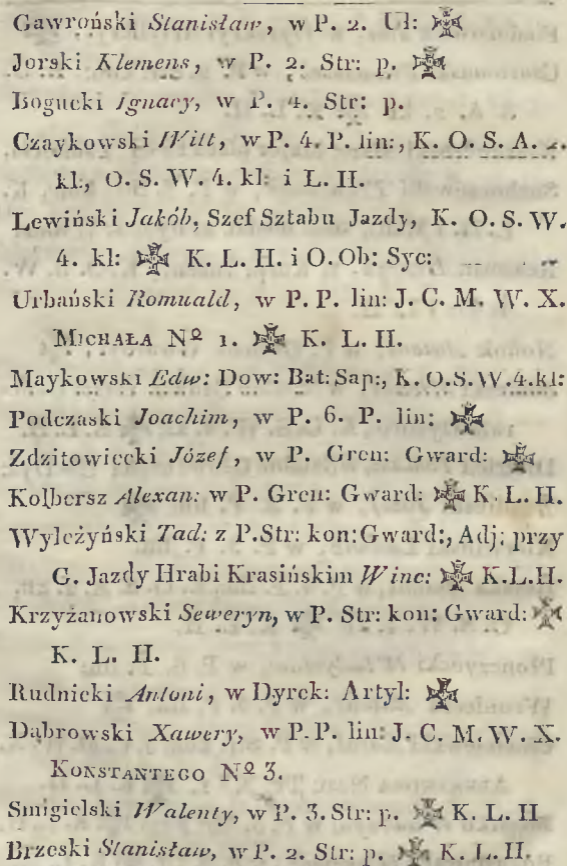 Gawroński Stanisław, w P. 2. Uł: ✠
Jorski Klemens, w P. 2. Str: p. ✠
Bogucki Ignacy, w P. 4. Str: p.
Czaykowski Witt, w P. 4. P. lin:, K. O. S. A. 2.
kl:, O. S. W. 4. kl: i L. H.
Lewiński Jakób, Szef Sztabu Jazdy, K. O. S. W.
4. kl: ✠ K. L. H. i O. Ob: Syc:
Urbański Romuald, w P. P. lin: J. C. M. W. X.
MICHAŁA Nº 1. ✠ K. L. H.
Maykowski Edw: Dow: Bat: Sap:, K. O. S. W. 4. kl:
Podczaski Joachim, w P. 6. P. lin: ✠
Zdzitowiecki Józef, w P. Gren: Gward: ✠
Kolbersz Alexan: w P. Gren: Gward: ✠ K. L. H.
Wyleżyński Tad: z P. Str: kon: Gward:, Adj: przy
G. Jazdy Hrabi Krasińskim Winc: ✠ K. L. H.
Krzyżanowski Seweryn, w P. Str: kon: Gward: ✠
K. L. H.
Rudnicki Antoni, w Dyrek: Artyl: ✠
Dąbrowski Xawery, w P. P. lin: J. C. M. W. X.
KONSTANTEGO Nº 3.
Smigielski Walenty, w P. 3. Str: p. ✠ K. L. H
Brzeski Stanisław, w P. 2. Str: p. ✠ K. L. H.